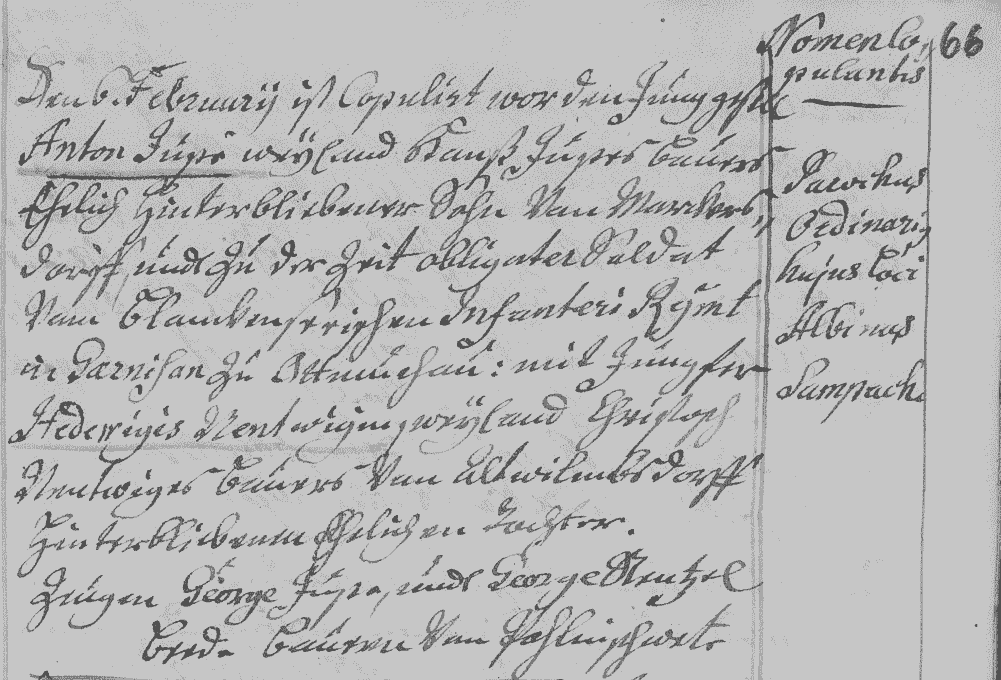 Den 6. February ist Copulirt worden Junggesell
Anton Jüpe weyland Hanß Jüpes Bauers
Ehelich hinterbliebener Sohn Von Marckers,,
dorff, und zu der Zeit obligater Soldat
Vom Blanckenseeischen Infanteri Rgmt
in Garnison zu Ottmuchau: mit Jungfer
Hedewigis Nentwigin weyland Christoph
Nentwiges Bauers Von Altwilmbsdorff
Hinterbliebenen Ehelichen Tochter.
Zeugen George Jüpe, und George Stentzel
Beede Bauern Von
Nomen Co,,
pulantis
66
Parochus
Ordinariq
hujus loci
Albinus
Sampach